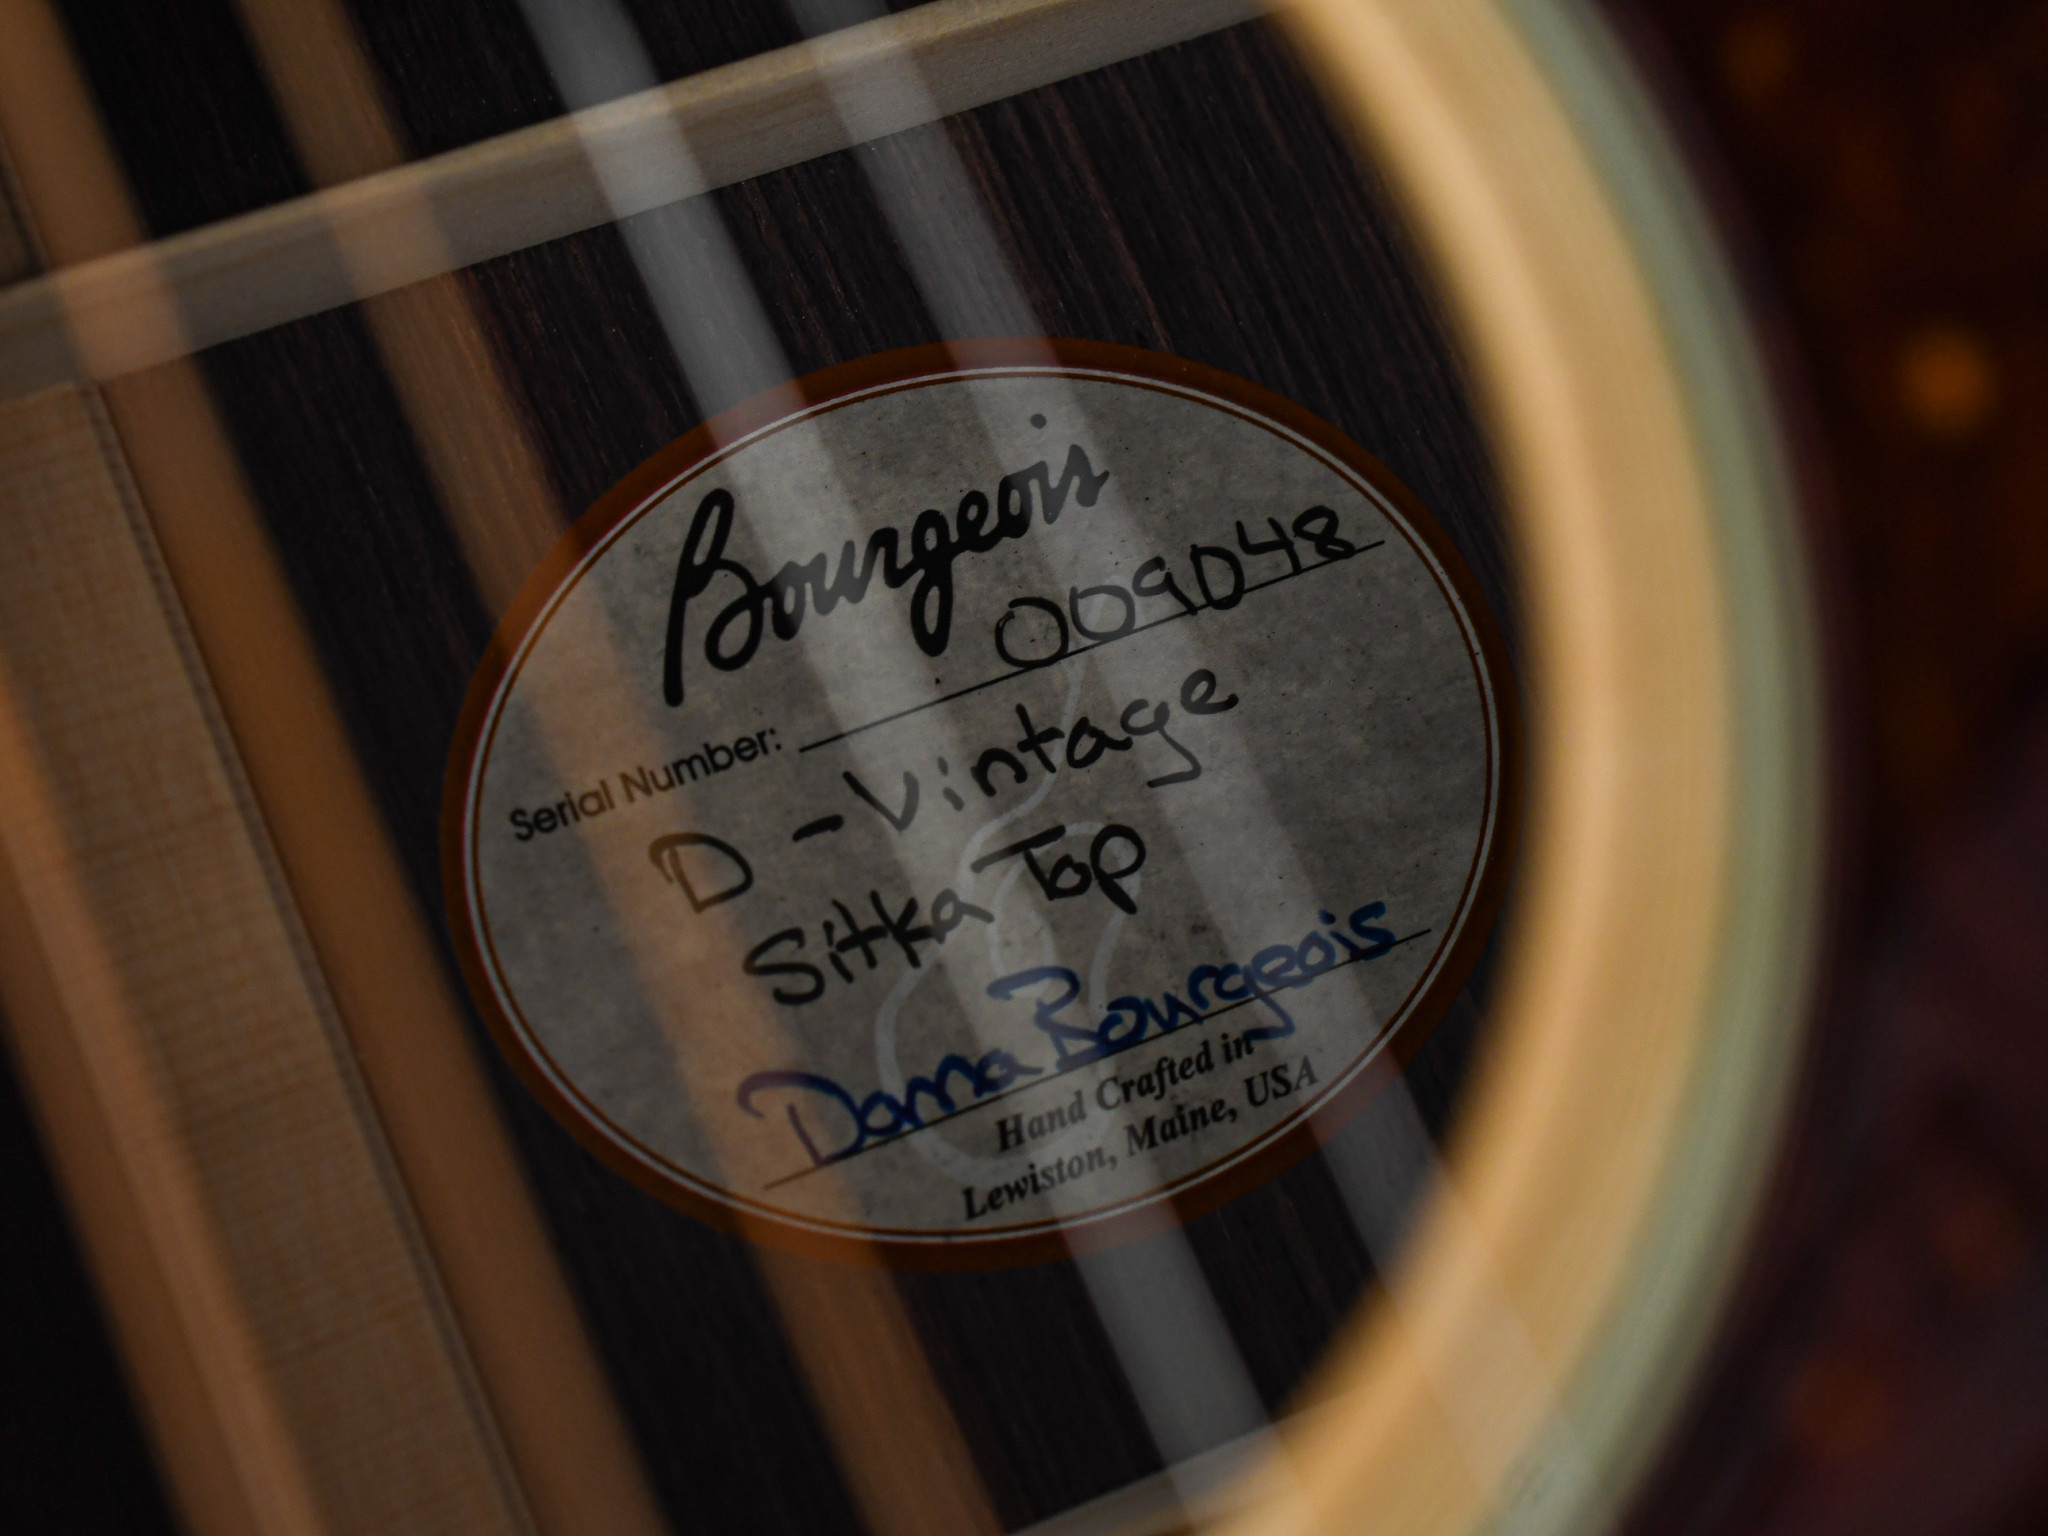 Bourgeois
Serial Number: 009048
D - Vintage
Sitka Top
Dana Bourgeois
Hand Crafted in
Lewiston, Maine, USA